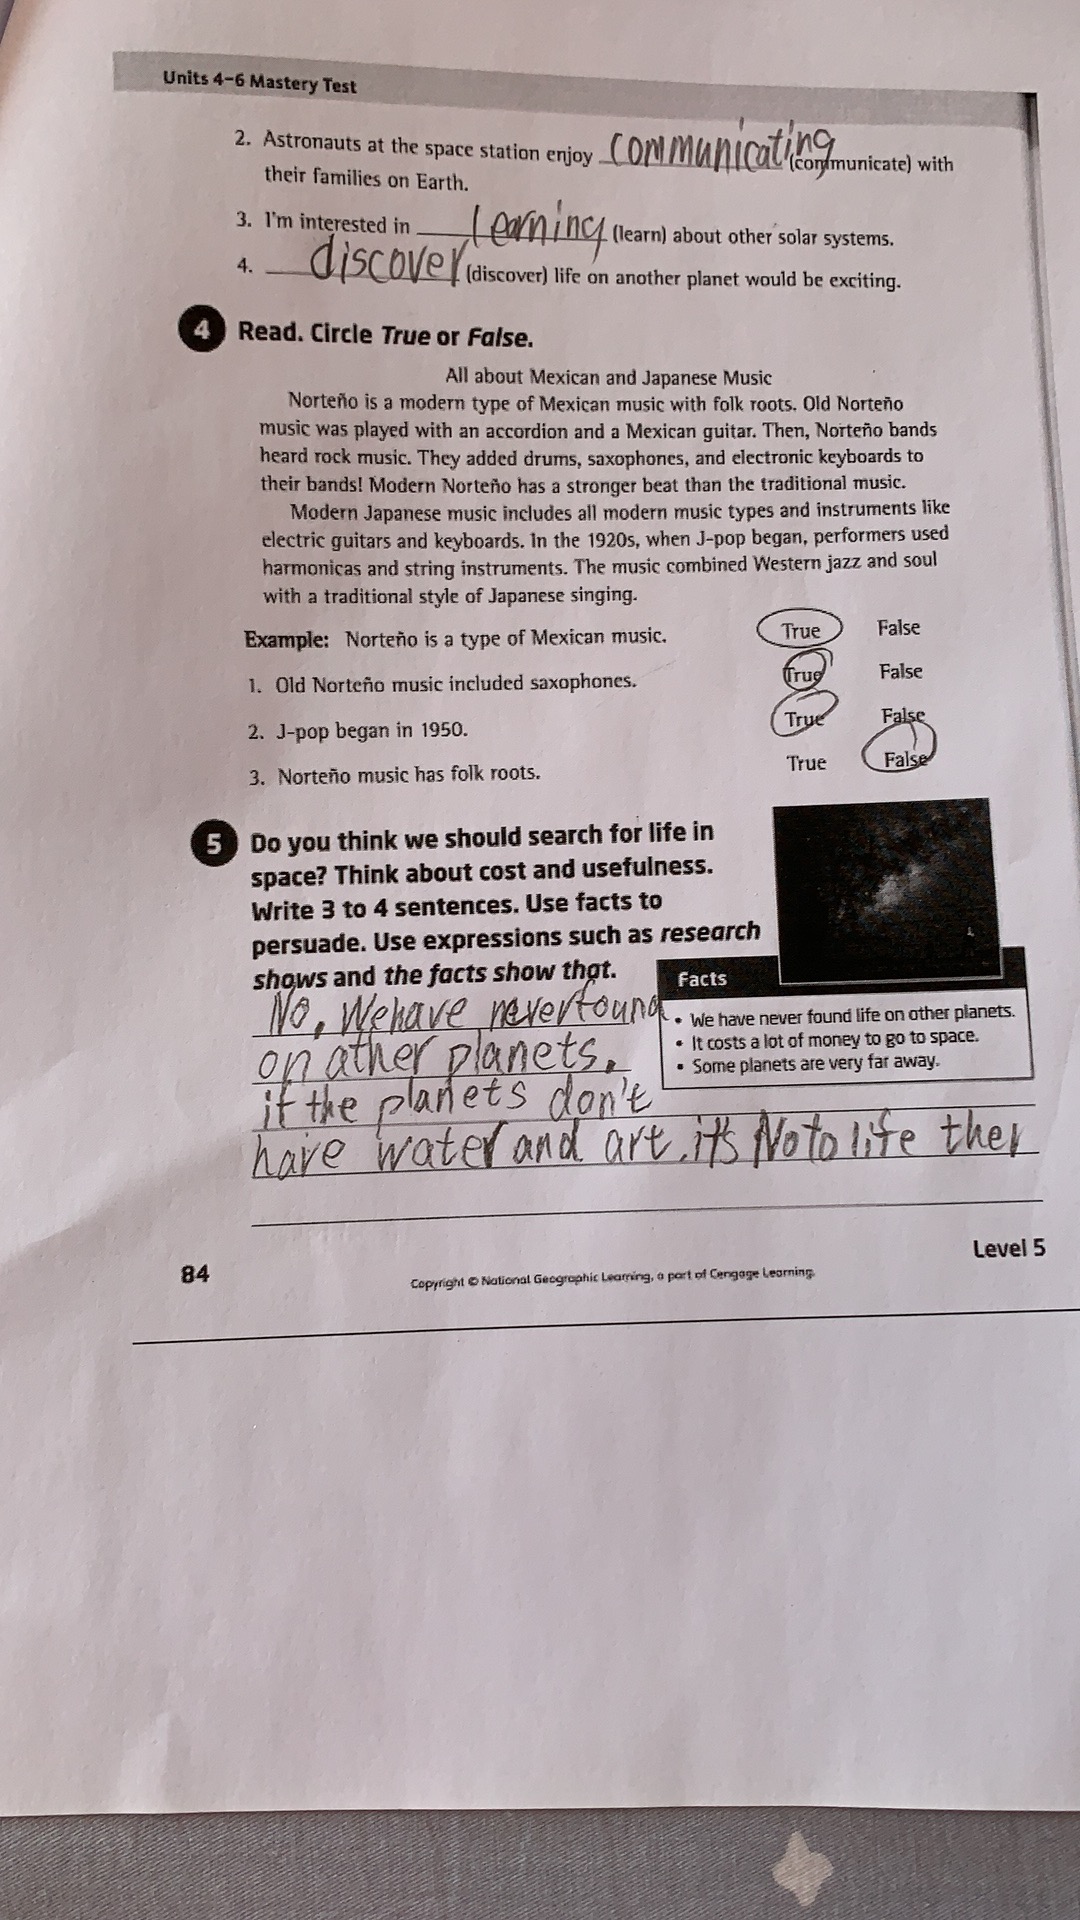 Units 4–6 Mastery Test
2. Astronauts at the space station enjoy communicating (communicate) with
their families on Earth.
3. I'm interested in learning (learn) about other solar systems.
4. discover (discover) life on another planet would be exciting.
4 Read. Circle True or False.
All about Mexican and Japanese Music
Norteño is a modern type of Mexican music with folk roots. Old Norteño
music was played with an accordion and a Mexican guitar. Then, Norteño bands
heard rock music. They added drums, saxophones, and electronic keyboards to
their bands! Modern Norteño has a stronger beat than the traditional music.
Modern Japanese music includes all modern music types and instruments like
electric guitars and keyboards. In the 1920s, when J-pop began, performers used
harmonicas and string instruments. The music combined Western jazz and soul
with a traditional style of Japanese singing.
Example: Norteño is a type of Mexican music. True False
1. Old Norteño music included saxophones. True False
2. J-pop began in 1950. True False
3. Norteño music has folk roots. True False
5 Do you think we should search for life in
space? Think about cost and usefulness.
Write 3 to 4 sentences. Use facts to
persuade. Use expressions such as research
shows and the facts show that.
Facts
• We have never found life on other planets.
• It costs a lot of money to go to space.
• Some planets are very far away.
No, We have never found
on ather planets.
if the planets don't
have water and art. it's No to life ther
84
Copyright © National Geographic Learning, a part of Cengage Learning.
Level 5